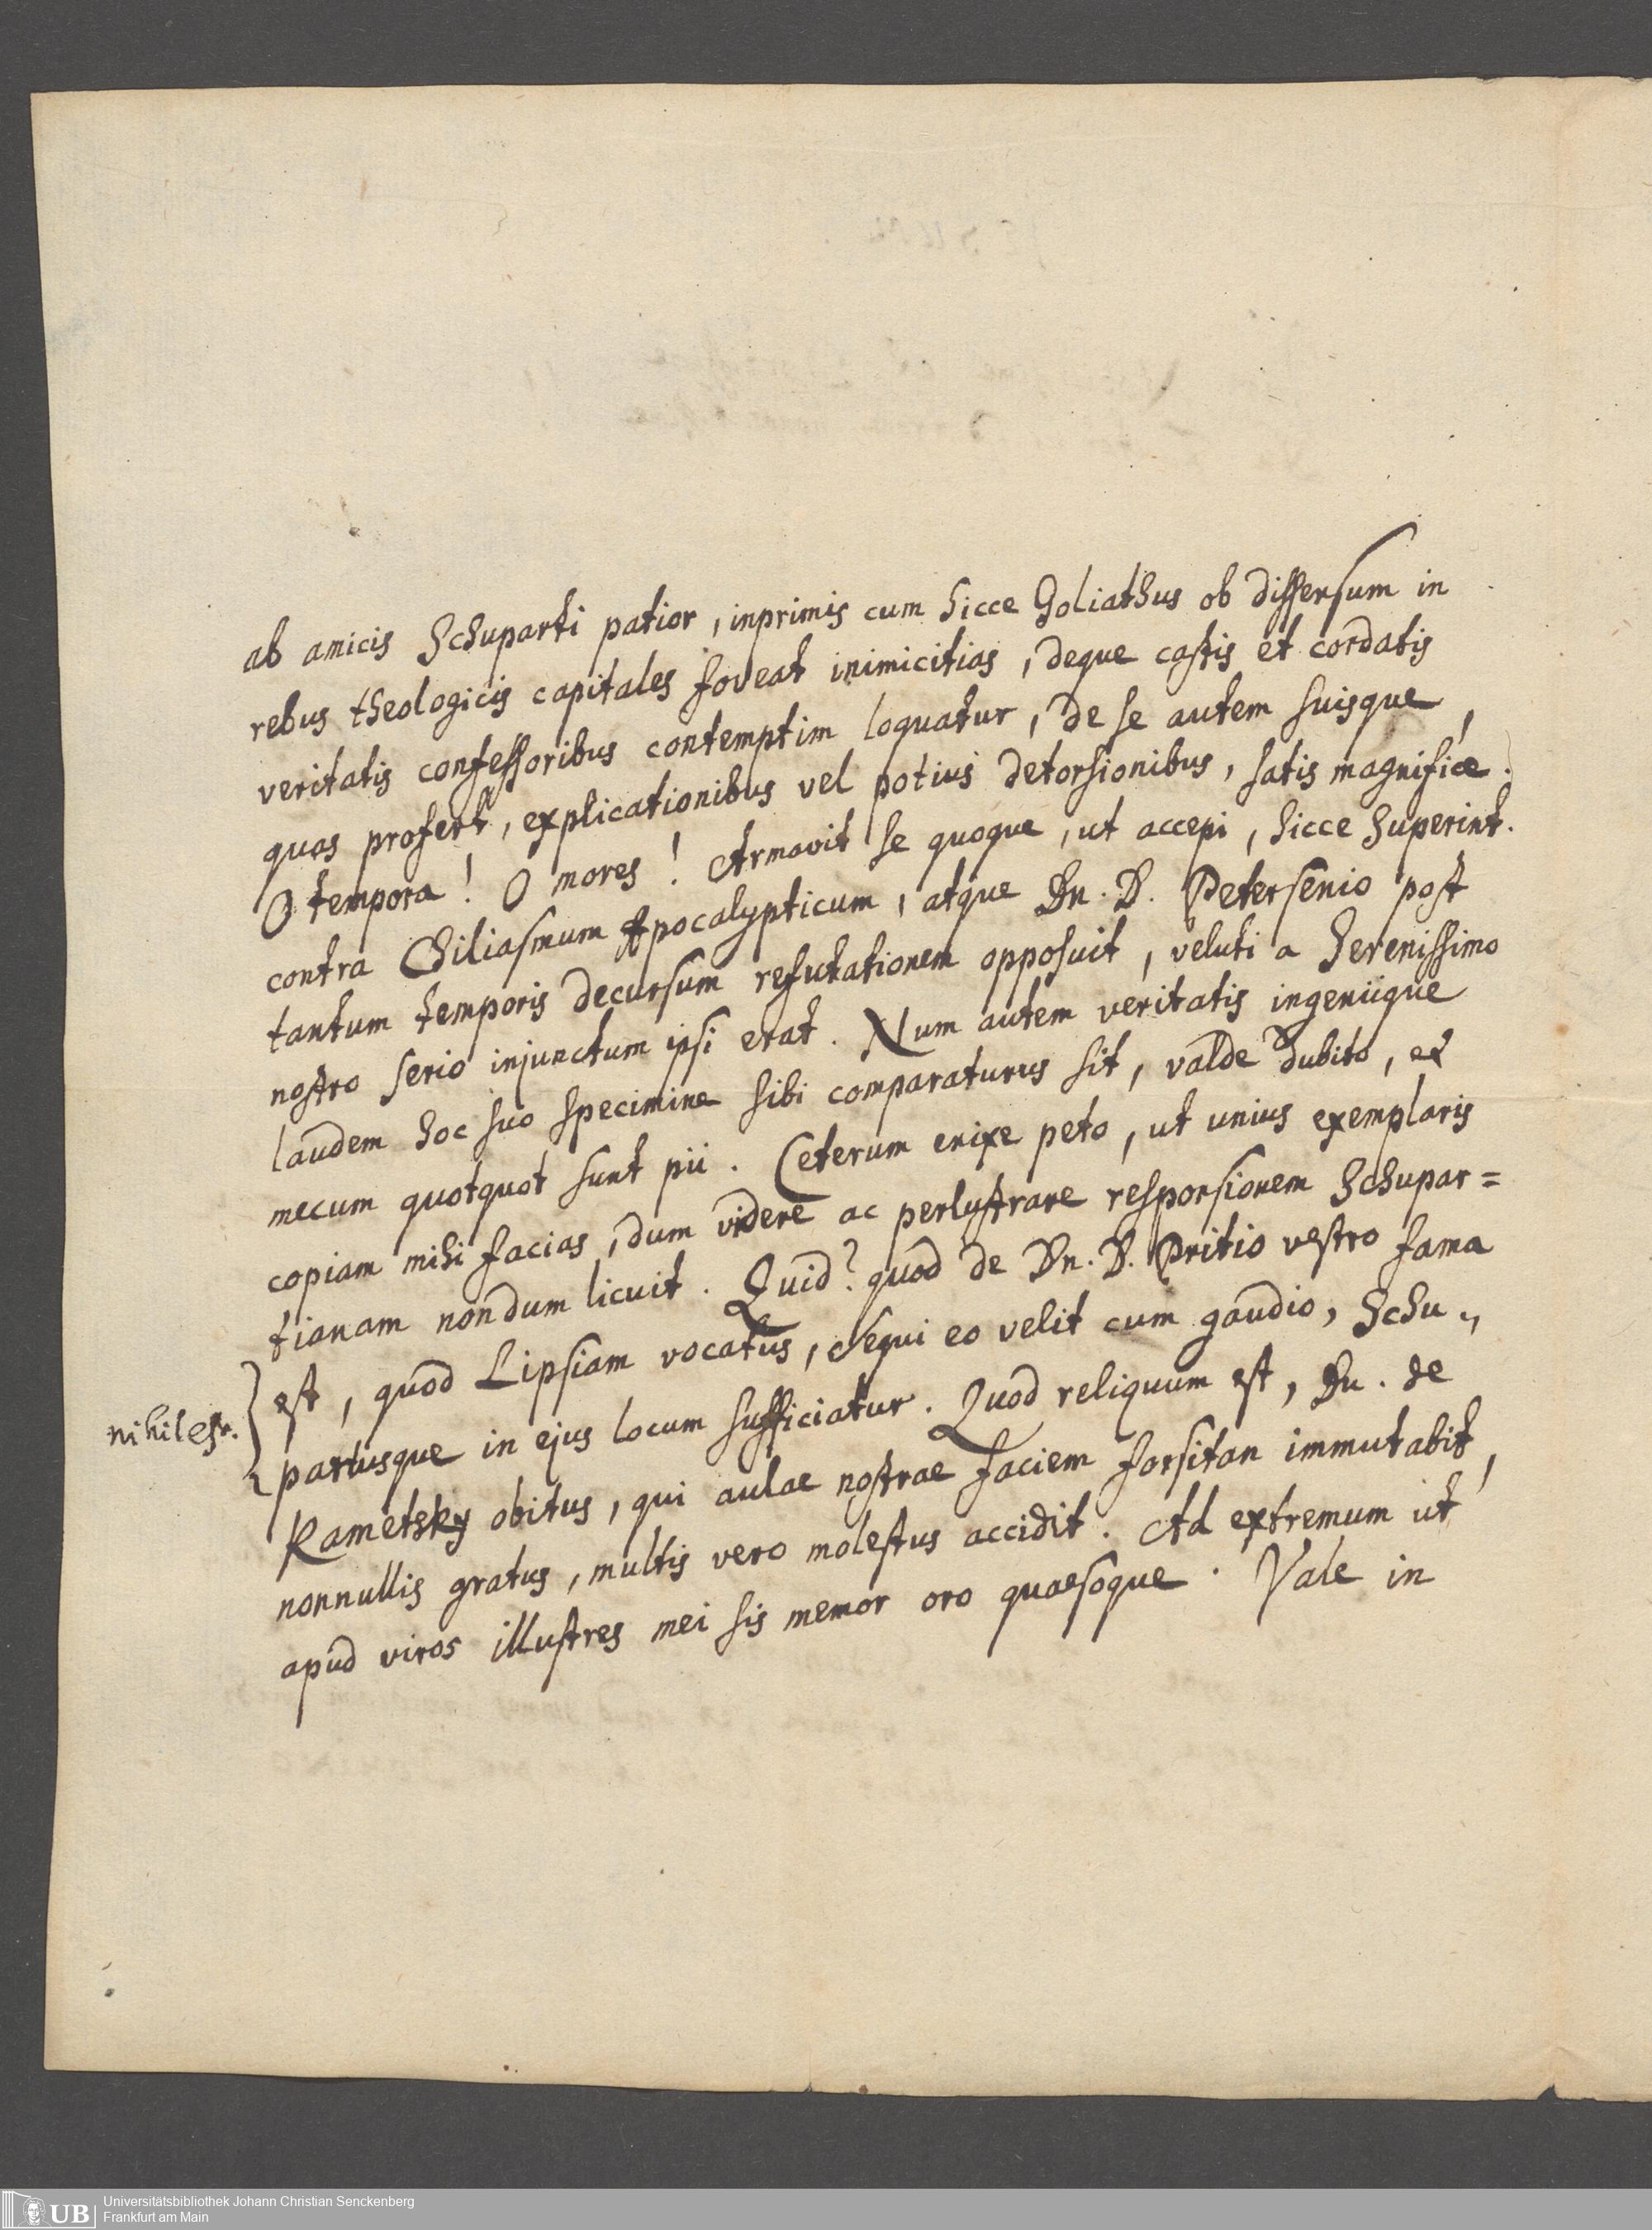 ab amicis Schuparti patior, inprimis cum hicce Goliathus ob dissensum in
rebus theologicis capitales foveat inimicitias, deque castis et cordatis
veritatis confessoribus contemptim loquatur, de se autem suisque,
quas profert, explicationibus vel potius detorsionibus, satis magnifice.
O tempora! O mores! Armavit se quoque, ut accepi, hicce Superint.
contra Chiliasmum Apocalypticum, atque Dn. D. Petersenio post
tantum temporis decursum refutationem opposuit, veluti a Serenissimo
nostro serio injunctum ipsi erat. Num autem veritatis ingeniique
laudem hoc suo specimine sibi comparaturus sit, valde dubito, et
mecum quotquot sunt pii. Ceterum enixe peto, ut unius exemplaris
copiam mihi facias, dum videre ac perlustrare responsionem Schupar=
tianam nondum licuit. Quid? quod de Dn. D. Pritio vestro fama
est, quod Lipsiam vocatus, sequi eo velit cum gaudio, Schu„
nihil est.
partusque in ejus locum sufficiatur. Quod reliquum est, Dn. de
Kametsky obitus, qui aulae nostrae faciem forsitan immutabit,
nonnullis gratus, multis vero molestus accidit. Ad extremum ut
apud viros illustres mei sis memor oro quaesoque. Vale in
UB Universitätsbibliothek Johann Christian Senckenberg
Frankfurt am Main